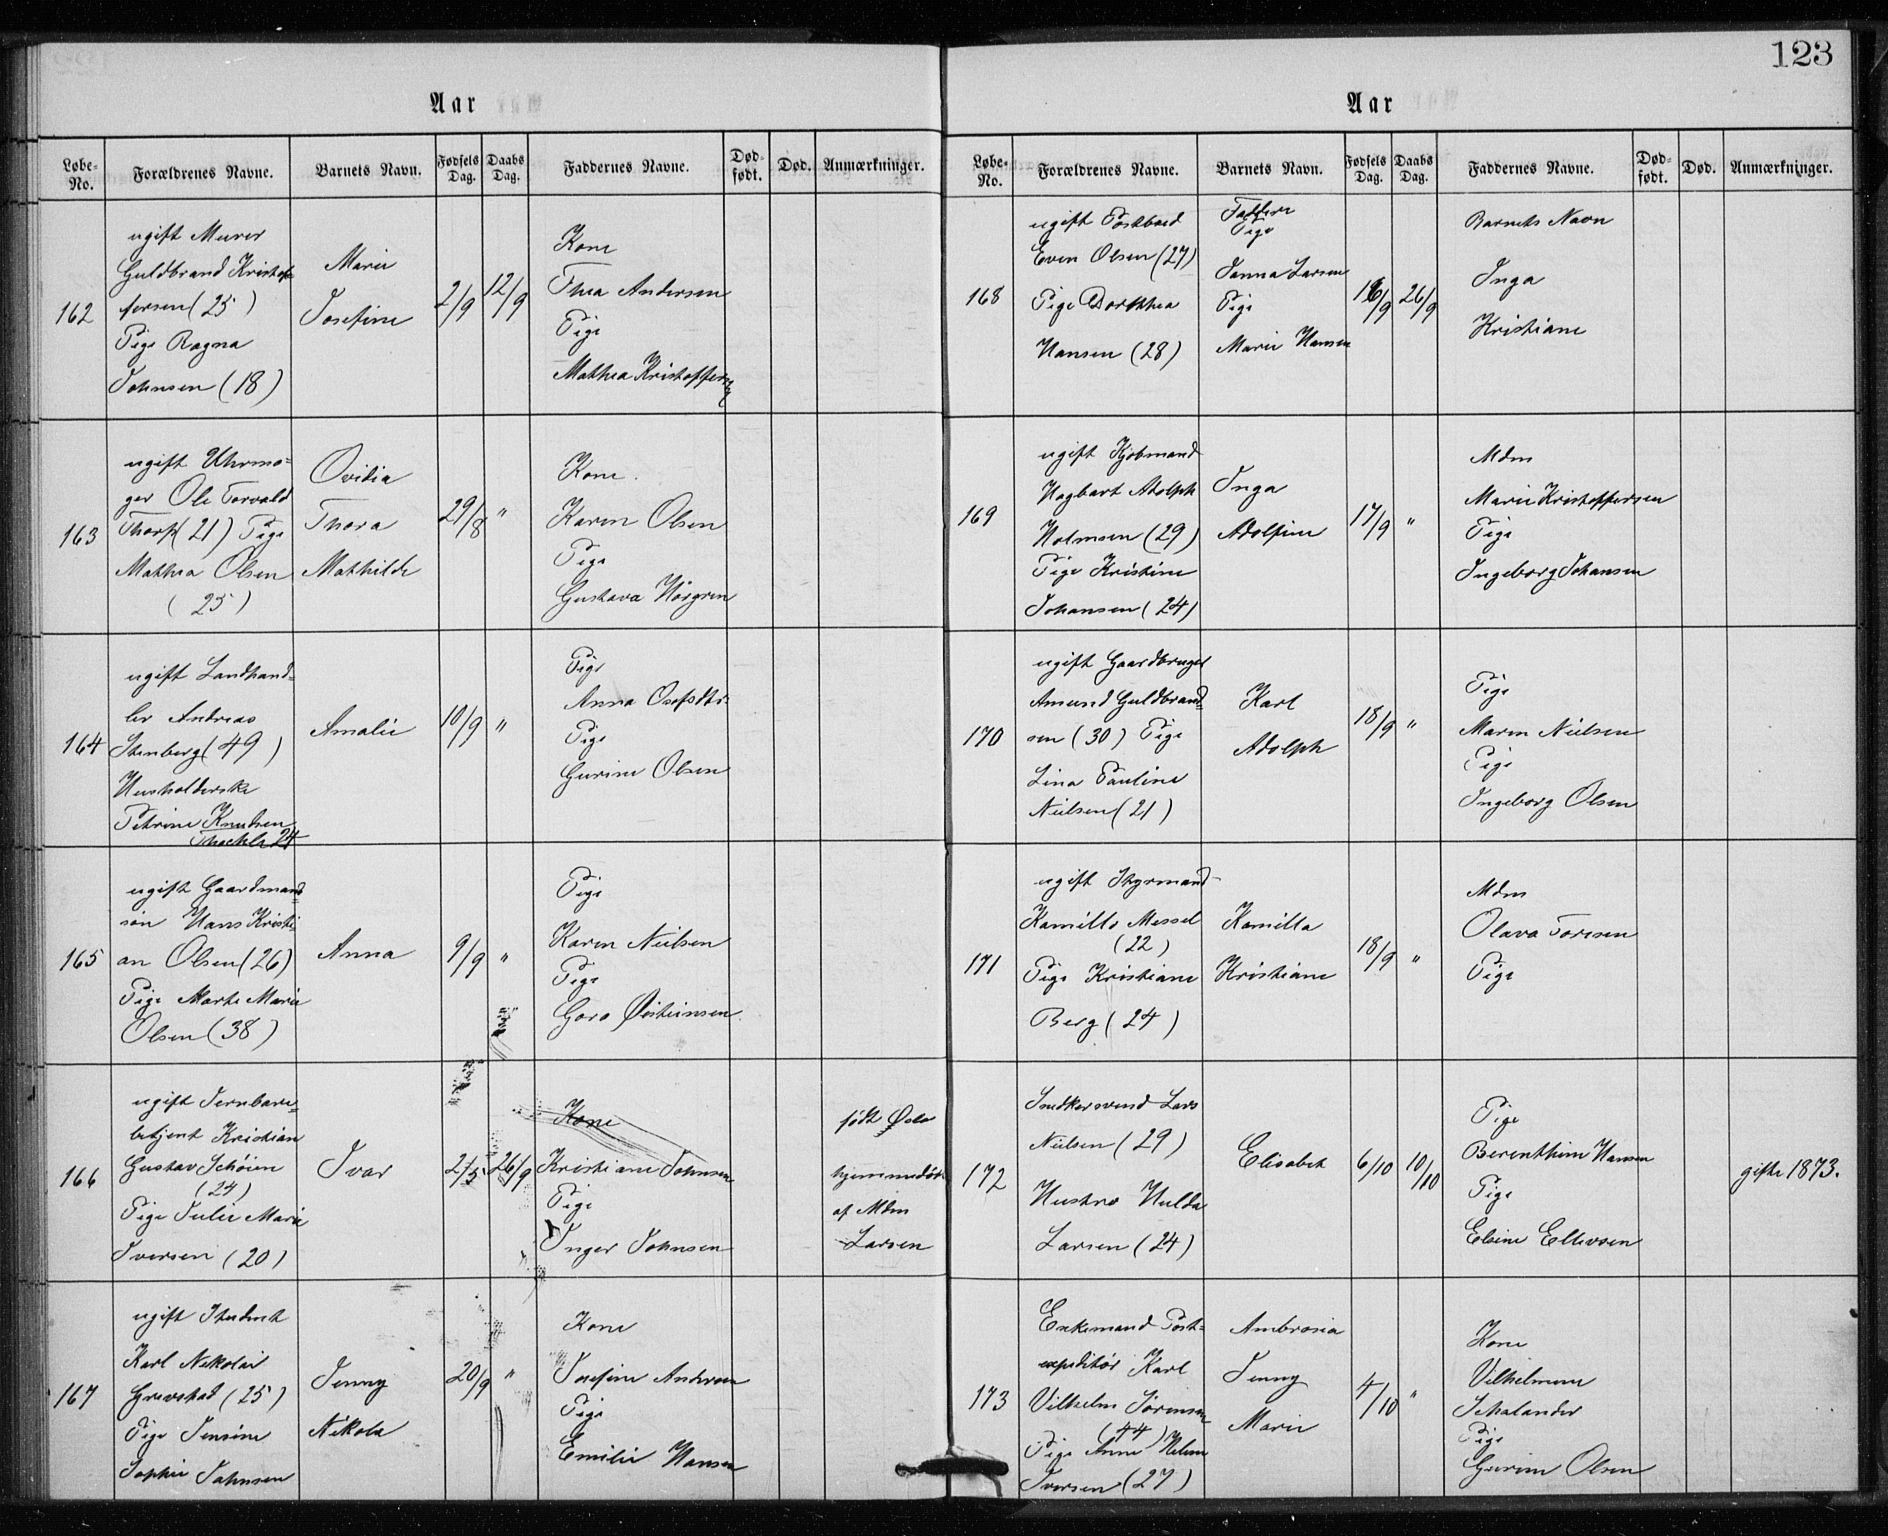 123
Aar
Løbe-No.
Forældrenes Navne.
Barnets Navn.
Fødsels Dag.
Daabs Dag.
Faddernes Navne.
Død-født.
Død.
Anmærkninger.
162
ugift Murer
Guldbrand Kristof
fersen (25)
Pige Ragna
Johnsen (18)
Marie
Josefine
2/9
12/9
Kone
Thea Andersen
Pige
Mathea Kristoffersen
163
ugift Uhrma-
ger Ole Torvald
Thorp (21) Pige
Mathea Olsen
(25)
Ovidia
Thora
Mathilde
29/8
"
Kone.
Karen Olsen
Pige
Gustava Hörgren
164
ugift Landhand-
ler Andreas
Stenberg (49)
Husholderske
Petrine Knudsen
24
Amalie
10/9
"
Pige
Anna
Pige
Gurine Olsen
165
ugift Gaardmand
søn Hans Kristi
an Olsen (26)
Pige Marte Marie
Olsen (38)
Anna
9/9
"
Pige
Karen Nielsen
Pige
Goro Østeinsen
166
ugift Jernbane-
betjent Kristian
Gustav Schöien
(24)
Pige Julie Marie
Iversen (20)
Ivar
2/5
26/9
Kone
Kristiane Johnsen
Pige
Inger Johnsen
født Oslo
hjemmedøbt
af Mdm
Larsen
167
ugift Student
Karl Nikolai
Grevstad (25)
Pige Jensine
Sophie Johnsen
Jenny
Nikola
20/9
"
Kone
Josefine Andersen
Pige
Emilie Hansen
Aar
Løbe-No.
Forældrenes Navne.
Barnets Navn.
Fødsels Dag.
Daabs Dag.
Faddernes Navne.
Død-født.
Død.
Anmærkninger.
168
ugift Postbud
Even Olsen (27)
Pige Dorthea
Hansen (28)
Faddere
Pige
Janna Larsen
Pige
Marie Hansen
16/9
26/9
Barnets Navn
Inga
Kristiane
169
ugift Kjøbmand
Hagbart Adolph
Holmsen (29)
Pige Kristine
Johansen (24)
Inga
Adolfine
17/9
"
Mdm
Marie Kristoffersen
Pige
Ingeborg Johansen
170
ugift Gaardbruger
Amund Guldbrand-
sen (30) Pige
Lina Pauline
Nielsen (21)
Karl
Adolph
18/9
"
Pige
Maren Nielsen
Pige
Ingeborg Olsen
171
ugift Styrmand
Kamillo Messel
(22)
Pige Kristiane
Berg (24)
Kamilla
Kristiane
18/9
"
Mdm
Olava Toresen
Pige
172
Snedkersvend Lars
Nielsen (29)
Hustro Hulda
Larsen (24)
Elisabet
6/10
10/10
Pige
Berenthine Hansen
Pige
Elsine Ellevsen
gifte 1873.
173
Enkemand Post-
expeditør Karl
Vilhelm Sørensen
(44)
Pige Anne Helene
Iversen (27)
Ambrosia
Jenny
Marie
4/10
"
Kone
Vilhelmine
Schalander
Pige
Gurine Olsen